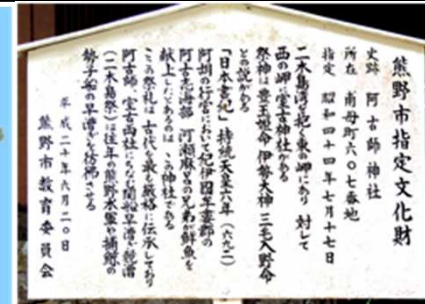 熊野市指定文化財
史跡 阿古師神社
所在 甫母町六〇七番地
指定 昭和四十四年七月十七日
二木島湾を抱く東の岬にあり 対して
西の岬に室古神社がある
祭神は豊玉姫命 伊勢大神 三毛入野命
との説がある
「日本書紀」持統天皇六年(六九二)
阿胡の行宮において紀伊国牟婁郡の
阿古志海部 河瀬麻呂の兄弟が鮮魚を
献上したとあるのは この神社である
ここの祭礼は古代を最も厳格に伝承しており
阿古師、室古両社にちなむ関船早漕ぎ競漕
(二木島祭)は往年の熊野水軍や捕鯨の
勢子船の早漕ぎを彷彿させる
平成二十年六月二〇日
熊野市教育委員会